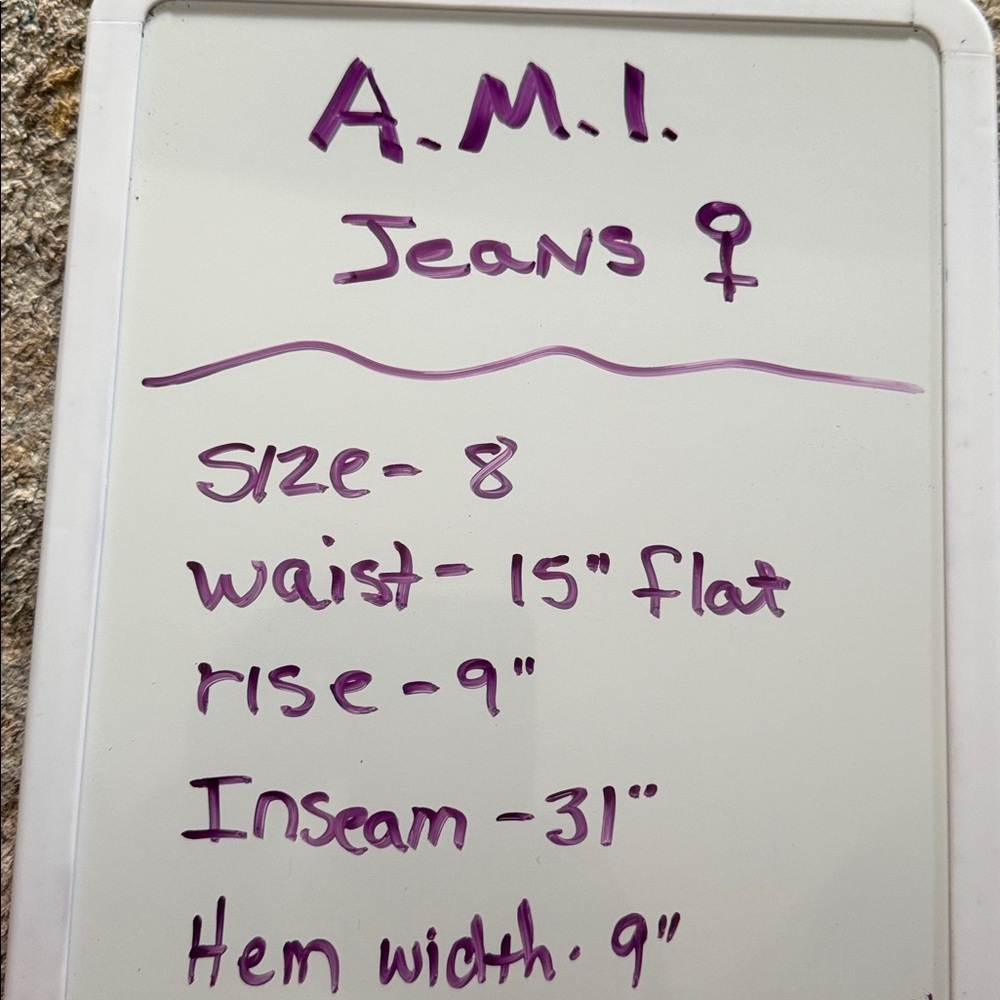 A.M.I.
Jeans ♀
Size- 8
waist- 15" flat
rise - 9"
Inseam - 31"
Hem width. 9"